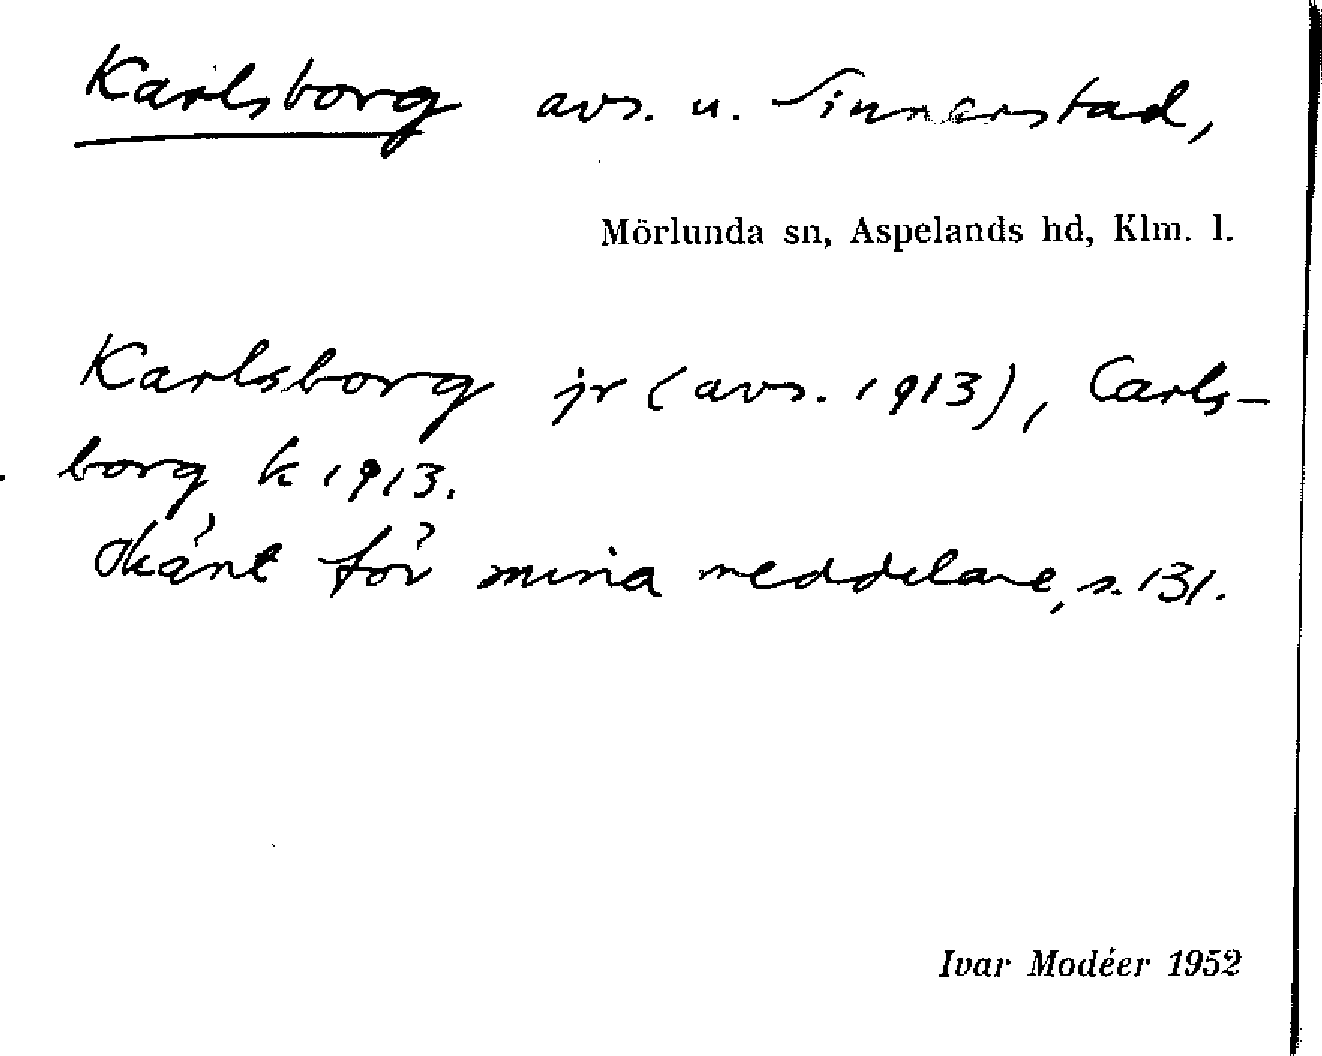 Karlsborg avs. u. Sinnerstad,
Mörlunda sn, Aspelands hd, Klm. l.
Karlsborg jr (avs. 1913), Carls-
borg k 1913.
Okänt för mina meddelare, s. 131.
Ivar Modéer 1952